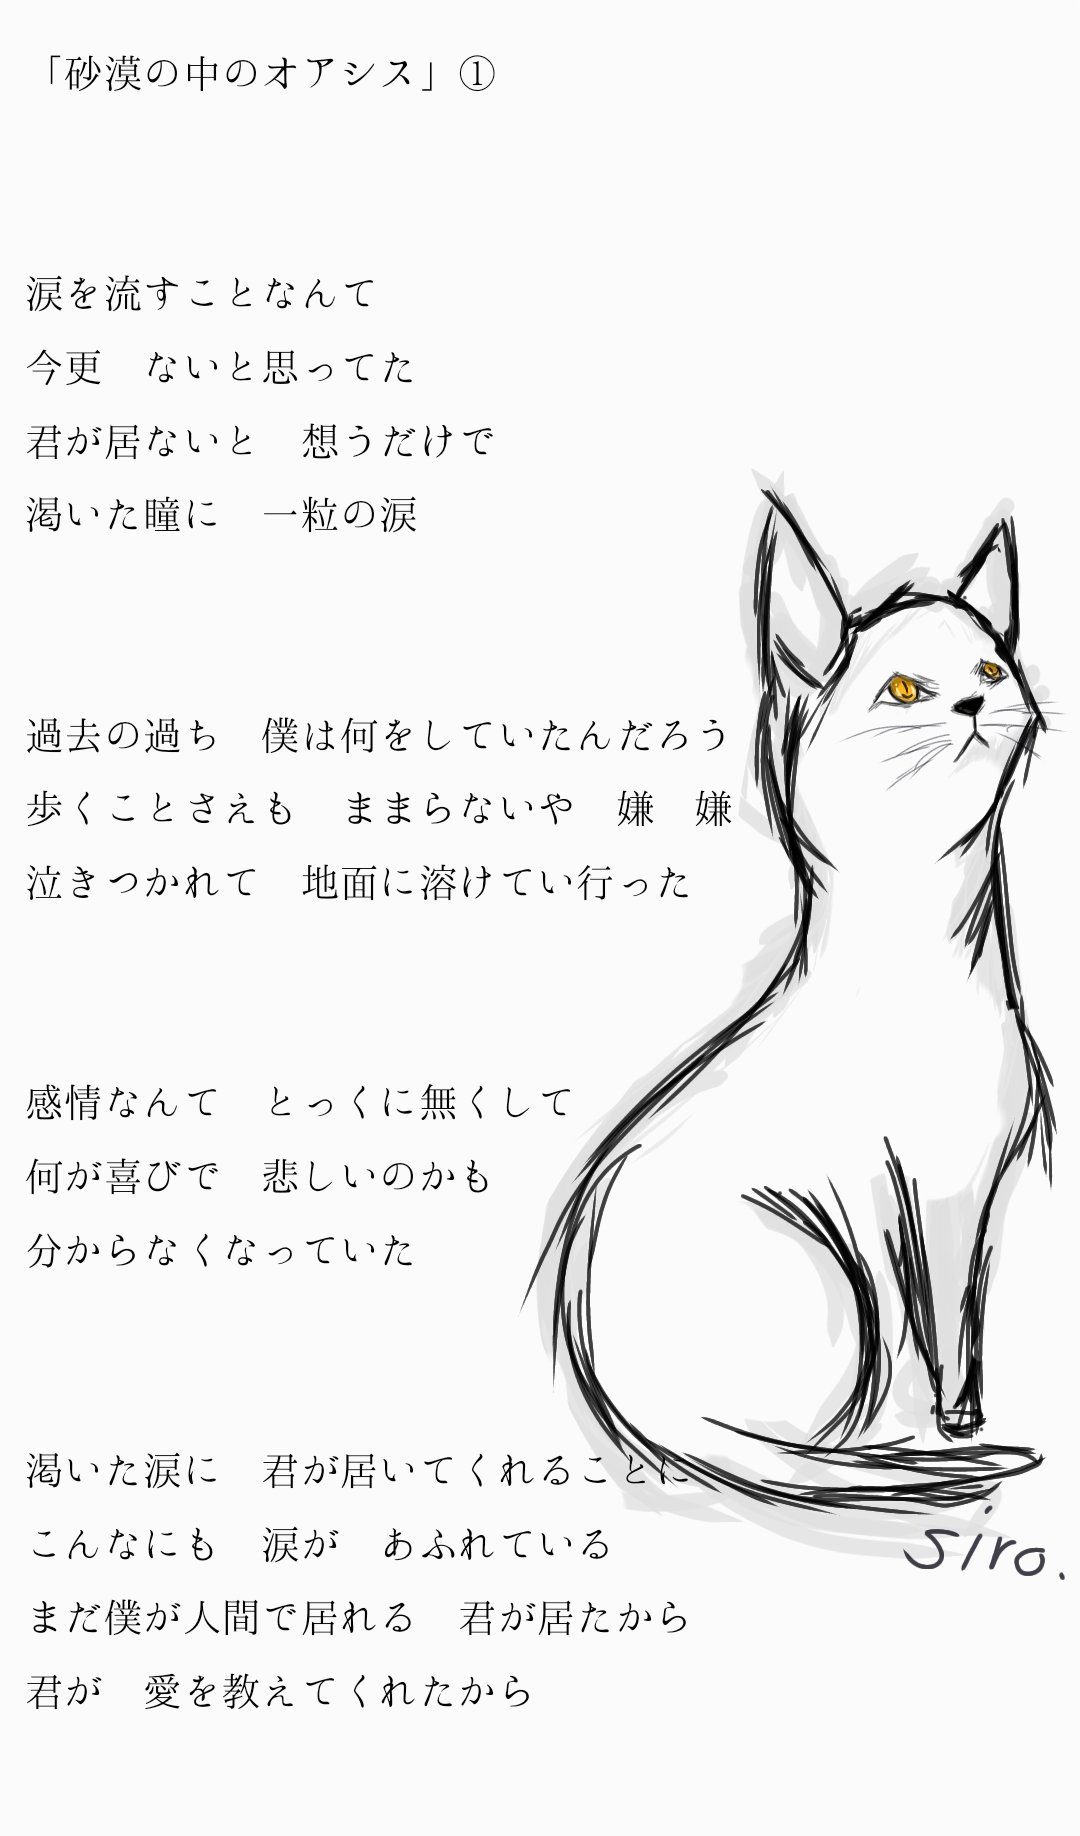 「砂漠の中のオアシス」①
涙を流すことなんて
今更　ないと思ってた
君が居ないと　想うだけで
渇いた瞳に　一粒の涙
過去の過ち　僕は何をしていたんだろう
歩くことさえも　ままらないや　嫌　嫌
泣きつかれて　地面に溶けてい行った
感情なんて　とっくに無くして
何が喜びで　悲しいのかも
分からなくなっていた
渇いた涙に　君が居いてくれることに
こんなにも　涙が　あふれている
まだ僕が人間で居れる　君が居たから
君が　愛を教えてくれたから
siro.